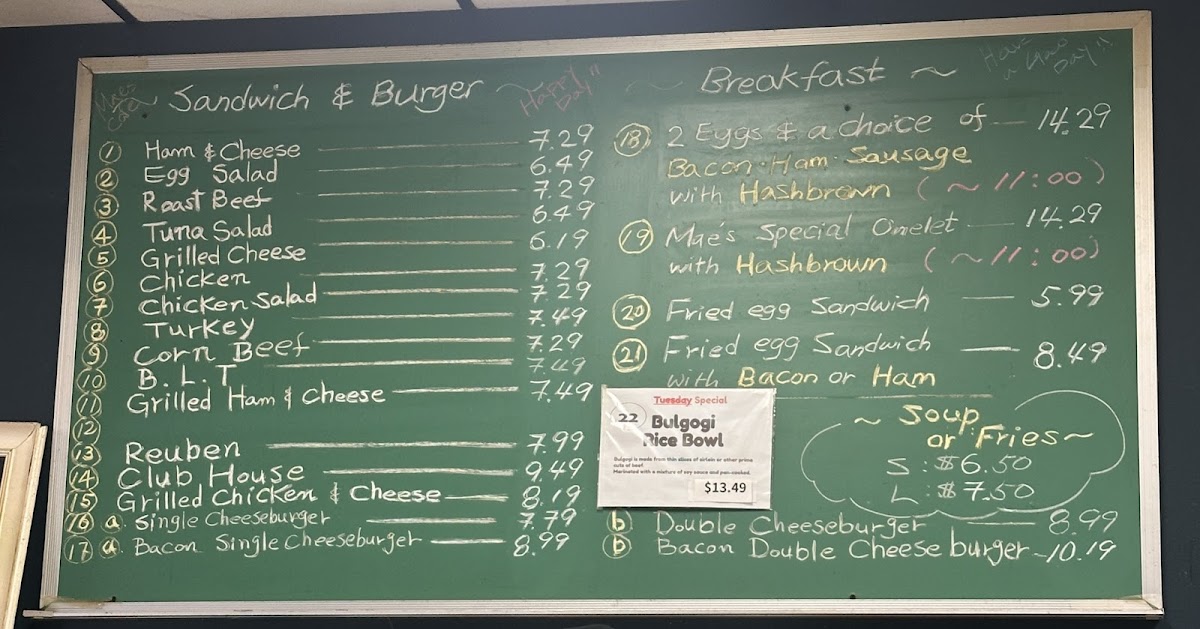 Sandwich & Burger ~
Happy Day!!
1 Ham & Cheese 7.29
2 Egg Salad 6.49
3 Roast Beef 7.29
4 Tuna Salad 6.49
5 Grilled Cheese 6.19
6 Chicken 7.29
7 Chicken Salad 7.29
8 Turkey 7.49
9 Corn Beef 7.29
10 B.L.T 7.49
11 Grilled Ham & Cheese 7.49
12
13 Reuben 7.99
14 Club House 9.49
15 Grilled Chicken & Cheese 8.19
16 a. Single Cheeseburger 7.79
17 a. Bacon Single Cheeseburger 8.99
~ Breakfast ~
Have a Good Day!!
18 2 Eggs & a choice of 14.29
Bacon·Ham·Sausage
with Hashbrown (~11:00)
19 Mae's Special Omelet 14.29
with Hashbrown (~11:00)
20 Fried egg Sandwich 5.99
21 Fried egg Sandwich 8.49
with Bacon or Ham
Tuesday Special
22 Bulgogi
Rice Bowl
Bulgogi is made from thin slices of sirloin or other prime
cuts of beef.
Marinated with a mixture of soy sauce and pan-cooked.
$13.49
~ Soup
or Fries ~
S : $6.50
L : $7.50
b Double Cheeseburger 8.99
b Bacon Double Cheeseburger 10.19